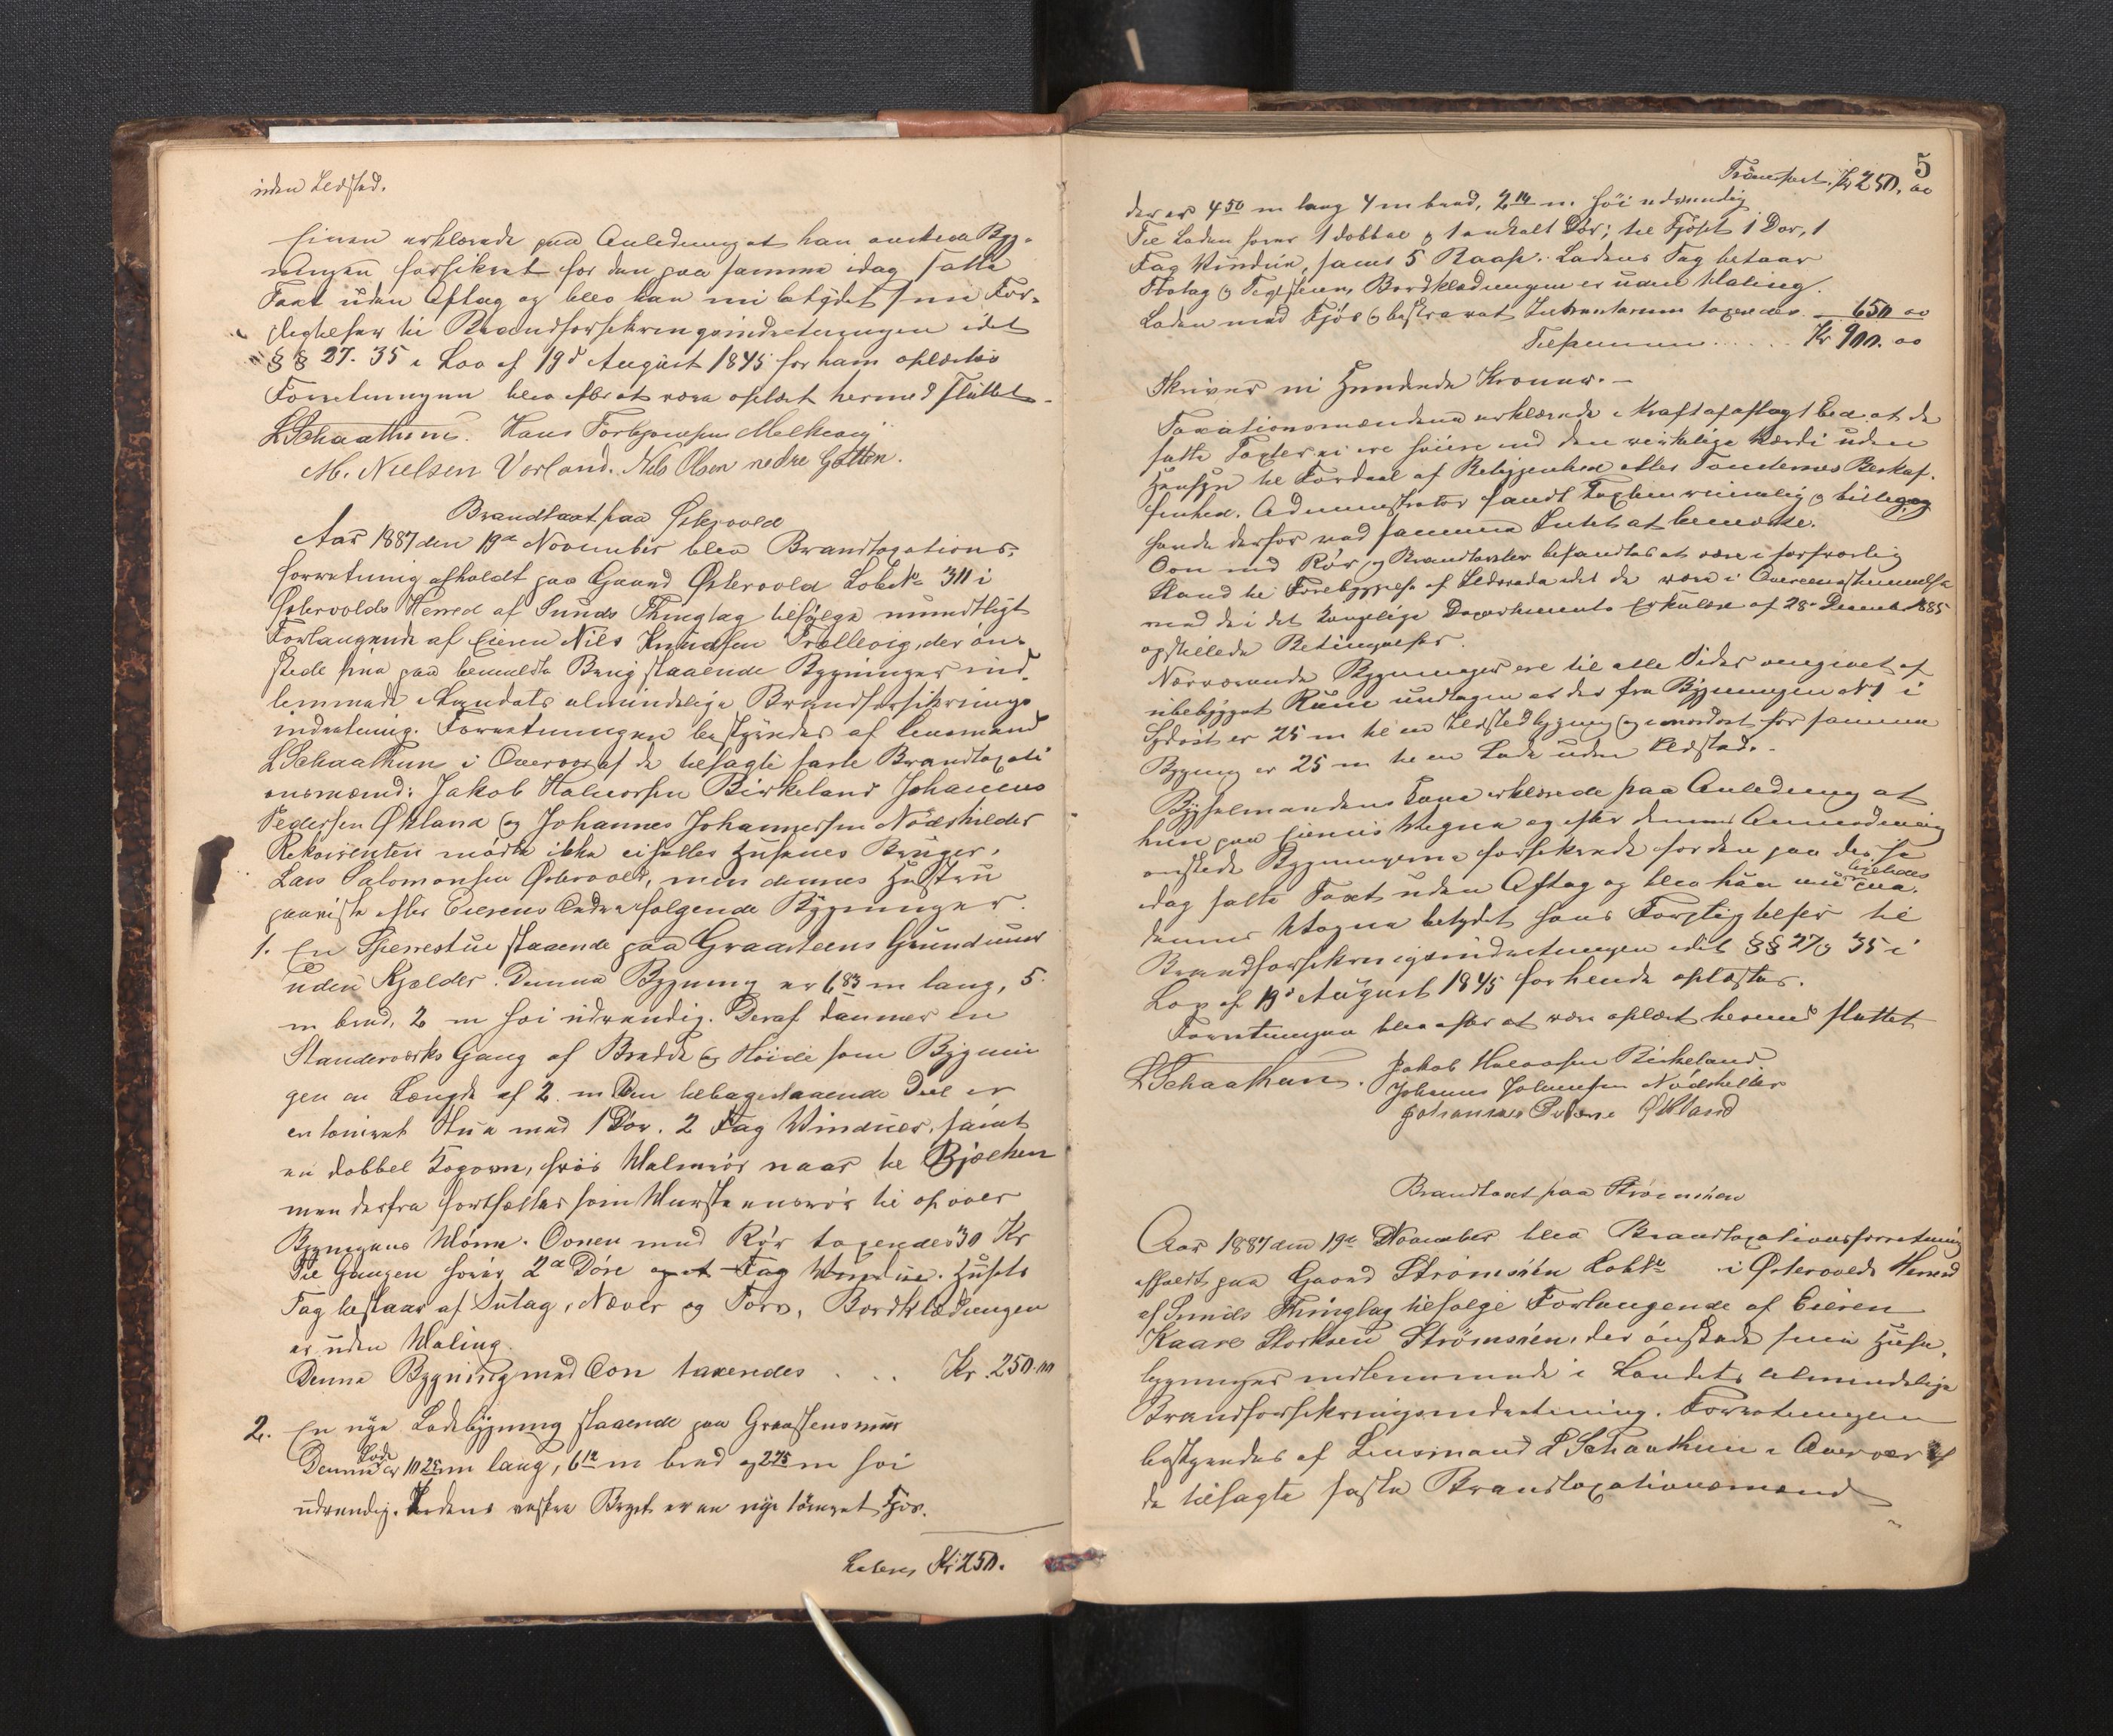 uden Ildsted.
Eieren erklærede paa Anledning at han ønskede Byg-
ningen forsikret for den paa samme idag satte
Taxt uden Aftag og blev han nu betydet sine For-
pligtelser til Brandforsikringsindretningen idet
§ § 27. 35 i Lov af 19d August 1845 for ham oplæstes
Forretningen blev efter at være oplæst hermed sluttet.
L Schaathun. Hans Torbjørnsen Melkevig
M. Nielsen Vorland. Nils Olsen nedre Gotten.
Brandtaxt paa Østervold
Aar 1887 den 19de November blev Brandtaxations-
forretning afholdt paa Gaard Østervold Løbe No 311 i
Østervolds Herred af Sunds Thinglag tilfølge mundtligt
Forlangende af Eieren Nils Knudsen Trællevig, der øn-
skede sine paa bemeldte Brug staaende Bygninger ind-
lemmede i Landets almindelige Brandforsikrings
indretning. Forretningen bestyredes af Lensmand
L Schaathun i Overvær af de tilsagte faste Brandtaxati
onsmænd: Jakob Halvorsen Birkeland Johannes
Pedersen Økland og Johannes Johannessen Nødskilder
Rekvirenten mødte ikke eiheller Husenes Bruger,
Lars Salomonsen Østervold, men dennes Hustru
paaviste efter Eierens Ordre følgende Bygninger.
1. En Sperrestue staaende paa Graasteens Grundmur
uden Kjælder. Denne Bygning er 6 83 m lang, 5
m bred, 2 m høi udvendig. Deraf danner en
Standerværks Gang af Bredde og Høide som Bygnin
gen en Længde af 2 m Den tilbagestaaende Deel er
en tømret Stue med 1 Dør. 2 Fag Vinduer, samt
en dobbel Kogovn, hvis Malmrør naar til Bjælken
men derfra fortsættes som Murstensrør til op over
Bygningens Møne. Ovnen med Rør taxeredes 30 Kr
Til Gangen hører 2de Døre og et Fag Vindue. Husets
Tag bestaar af Sutag, Næver og Torv, Bordklædningen
er uden Maling.
Denne Bygning med Ovn taxeredes . . . Kr. 250.00
2. En nye Ladebygning staaende paa Graastensmur
Denne Lade er 10 25 m lang, 6 12 m bred og 2 75 m høi
udvendig. Ladens vestre Ende er en nye tømret Fjøs.
Lateris Kr 250.
5
Transport. Kr 250. 00
der er 4 50 m lang 4 m bred, 2 10 m høi udvendig
Til Laden hører 1 dobbel og 1 enkelt Dør; til Fjøset 1 Dør, 1
Fag Vindue, samt 5 Baase. Ladens Tag bestaar
Teglsteen, Bordklædningen er uden Maling.
Laden med Fjøs og beskrevet Inventarium taxeredes 650 00
Tilsammen . . . . . Kr 900. 00
Skriver ni Hundrede Kroner. –
Taxationsmændene erklærede i Kraft af aflagt Eed at de
satte Taxter ei ere høiere end den virkelige Værdi uden
Hensyn til Fordeel af Beliggenhed eller Tomternes Beskaf-
fenhed. Administrator fandt Taxten rimelig og billig og
havde derfor ved samme Intet at bemærke.
Ovn med Rør og Brandtexter befandtes at være i forsvarlig
Stand til Forebyggelse af Ildsvaade idet de vare i Overeensstemmelse
med de i det Kongelige Departements Cirkulære af 28de Decemb. 1885
opstillede Betingelser.
Nærværende Bygninger ere til alle Sider omgivet af
ubebygget Rum undtagen at der fra Bygningen No 1 i
Sydøst er 25 m til en Ildstedbygning og i nordost for samme
Bygning er 25 m til en Lade uden Ildsted. –
Bygselmandens Kone erklærede paa Anledning at
hun paa Eierens Vegne og efter dennes Anmodning
ønskede Bygningerne forsikrede for den paa disse
idag satte Taxt uden Aftag og blev hun nu ligeledes paa
dennes Vegne betydet hans Forpligtelser til
Brandforsikringsindretningen idet §§ 27 og 35 i
Lov af 19d August 1845 for hende oplæstes.
Forretningen blev efter at være oplæst hermed sluttet
L Schaathun. Jakob Halvorsen Birkeland
Johannes Johannesen Nødskilder
Johannes Pedersen Økland
Brandtaxt paa Strømsnæn
Aar 1887 den 19de November blev Brandtaxationsforretning
afholdt paa Gaard Strømsnæn Løbe No i Østervolds Herred
af Sunds Thinglag tilfølge Forlangende af Eieren
Kaare Storksen Strømsnæn, der ønskede sine Huse-
bygninger indlemmede i Landets almindelige
Brandforsikringsindretning. Forretningen
bestyredes af Lensmand L Schaathun i Overvær af
de tilsagte faste Brandtaxationsmænd